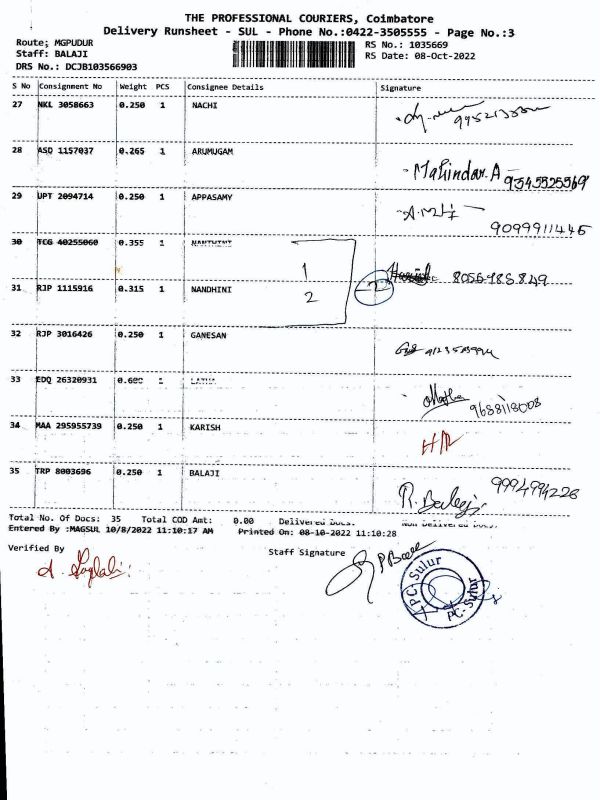 THE PROFESSIONAL COURIERS, Coimbatore
Delivery Runsheet - SUL - Phone No.:0422-3505555 - Page No.:3
Route; MGPUDUR
RS No.: 1035669
Staff: BALAJI
RS Date: 08-Oct-2022
DRS No.: DCJB103566903
S No Consignment No Weight PCS Consignee Details Signature
27 NKL 3058663 0.250 1 NACHI
28 ASD 1157037 0.265 1 ARUMUGAM
Mahindar.A 9545525569
29 UPT 2094714 0.250 1 APPASAMY
9099911445
30 TCG 40255060 0.355 1 NANTHINI
1
31 RJP 1115916 0.315 1 NANDHINI
2
32 RJP 3016426 0.250 1 GANESAN
33 EDQ 26320931 0.600 1 LATHA
9688118008
34 MAA 295955739 0.250 1 KARISH
35 TRP 8003696 0.250 1 BALAJI
R. Balaji 9994994226
Total No. Of Docs: 35 Total COD Amt: 0.00 Delivered Docs: Non Delivered Docs:
Entered By :MAGSUL 10/8/2022 11:10:17 AM Printed On: 08-10-2022 11:10:28
Verified By Staff Signature
PC-Sulur
PC-Sulur